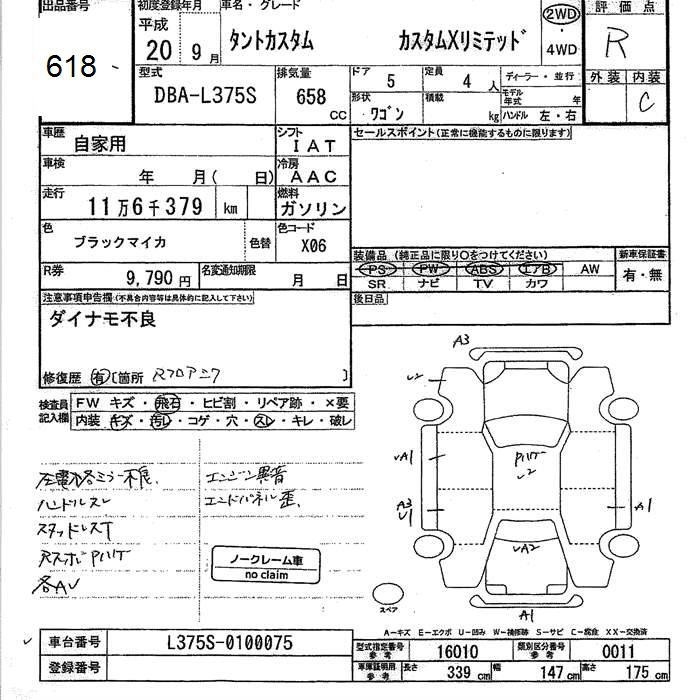 出品番号 初度登録年月 車名・グレード 評価点
618 平成 20 9月 タントカスタム カスタムXリミテッド 2WD・4WD R
型式 排気量 ドア 定員 ディーラー・並行 外装 内装
DBA-L375S 658 CC 5 4人 モデル年式 年 C
形状 ワゴン 積載 kg ハンドル 左・右
車歴 自家用 シフト IAT セールスポイント(正常に機能するものに限ります)
車検 年 月( 日) 冷房 AAC
走行 11万6千379 km 燃料 ガソリン
色 ブラックマイカ 色替 色コード X06
装備品 (純正品に限り○をつけてください) 新車保証書
PS PW ABS エアB AW 有・無
SR ナビ TV カワ
R券 9,790円 名変通知期限 月 日
後日品
注意事項申告欄(不具合内容等は具体的に記入して下さい)
ダイナモ不良
修復歴 有[箇所 ]
検査員記入欄 FW キズ・飛石・ヒビ割・リペア跡・×要
内装 キズ・汚レ・コゲ・穴・スレ・キレ・破レ
左電格ミラー不良. エンジン異音
ハンドルスレ エンドパネル歪.
スタッドレスT
各AU
ノークレーム車
no claim
A3
U2
UA1
A3
U1
U2
A1
UA2
A1
スペア
A-キズ E-エクボ U-凹み W-補修跡 S-サビ C-腐食 XX-交換済
車台番号 L375S-0100075
登録番号
型式指定番号 参考 16010 類別区分番号 参考 0011
車庫証明用 参考 長さ 339cm 幅 147cm 高さ 175cm